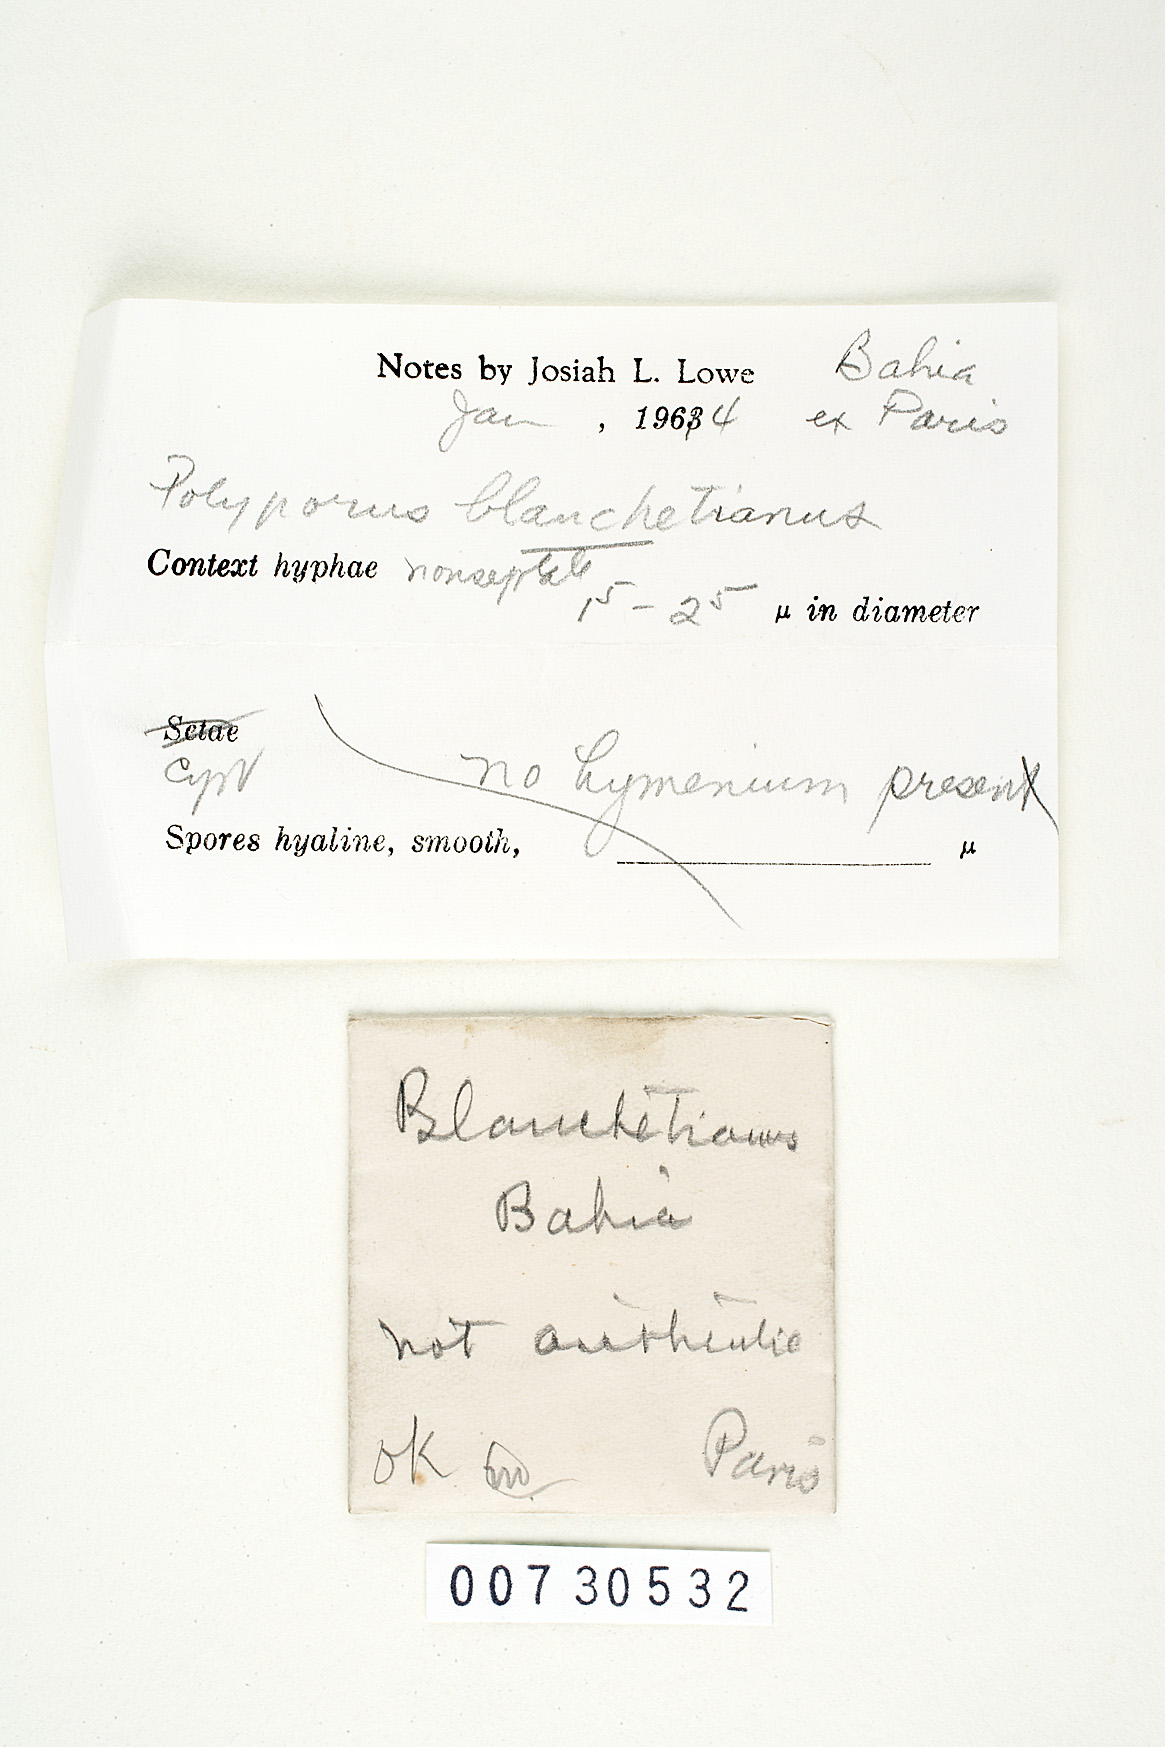 Notes by Josiah L. Lowe Bahia
Jan , 1964 ex Paris
Polyporus blanchetianus
Context hyphae nonseptate
1⁵ - 2⁵ μ in diameter
Setae
Cyst no hymenium present
Spores hyaline, smooth, μ
Blanchetianus
Bahia
not authentic
OK Paris
00730532